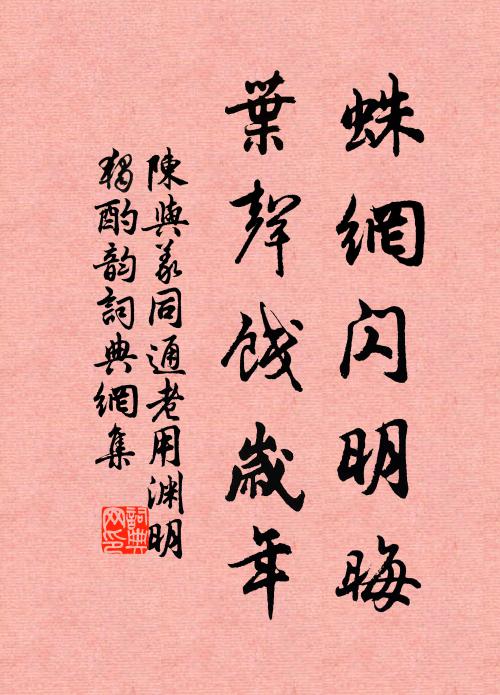 蛛網閃明晦
葉聲餞歲年
陳與義同通老用淵明
獨酌韵詞典網集
詞典網印